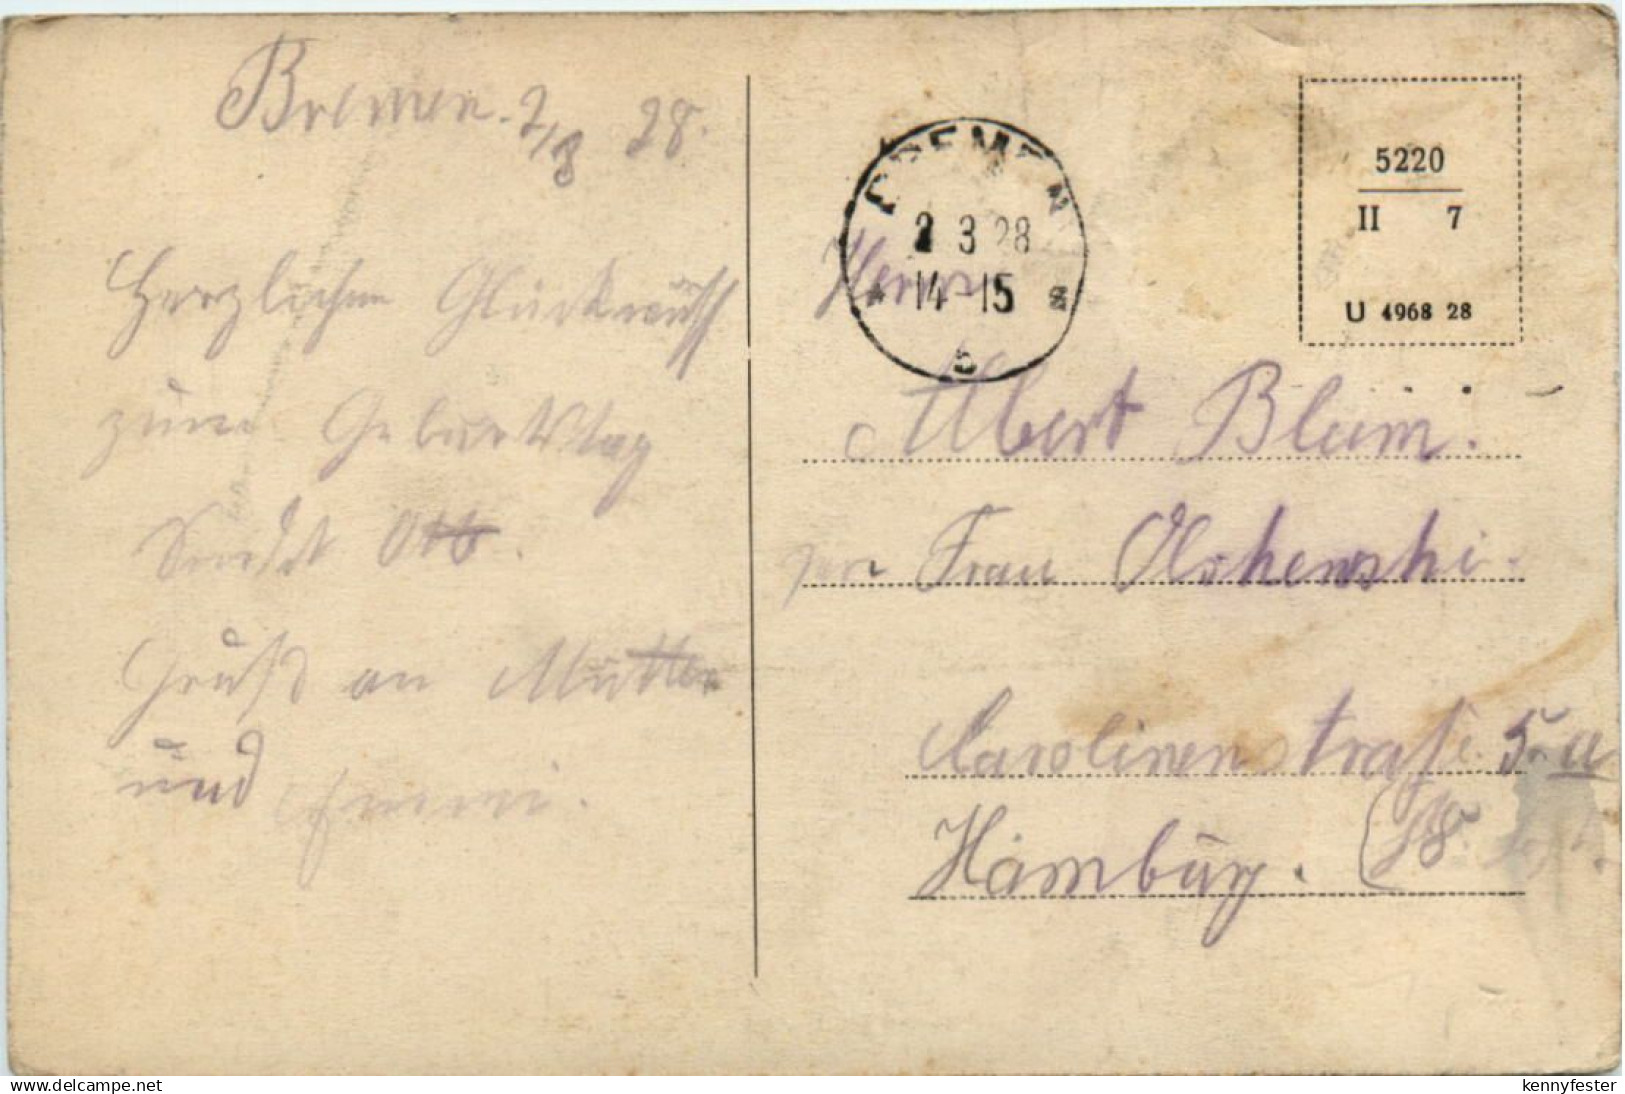 Bremen. 2/3 28.
Herzlichen Glückwunsch
zum Geburtstag
Sendet Otto.
Gruß an Mutter
und Emmi.
BREMEN
2 3 28
14-15
5220
II 7
U 4968 28
Herrn
Albert Blum.
per Frau
Carolinenstraße 5 a
Hamburg.
www.delcampe.net
kennyfester